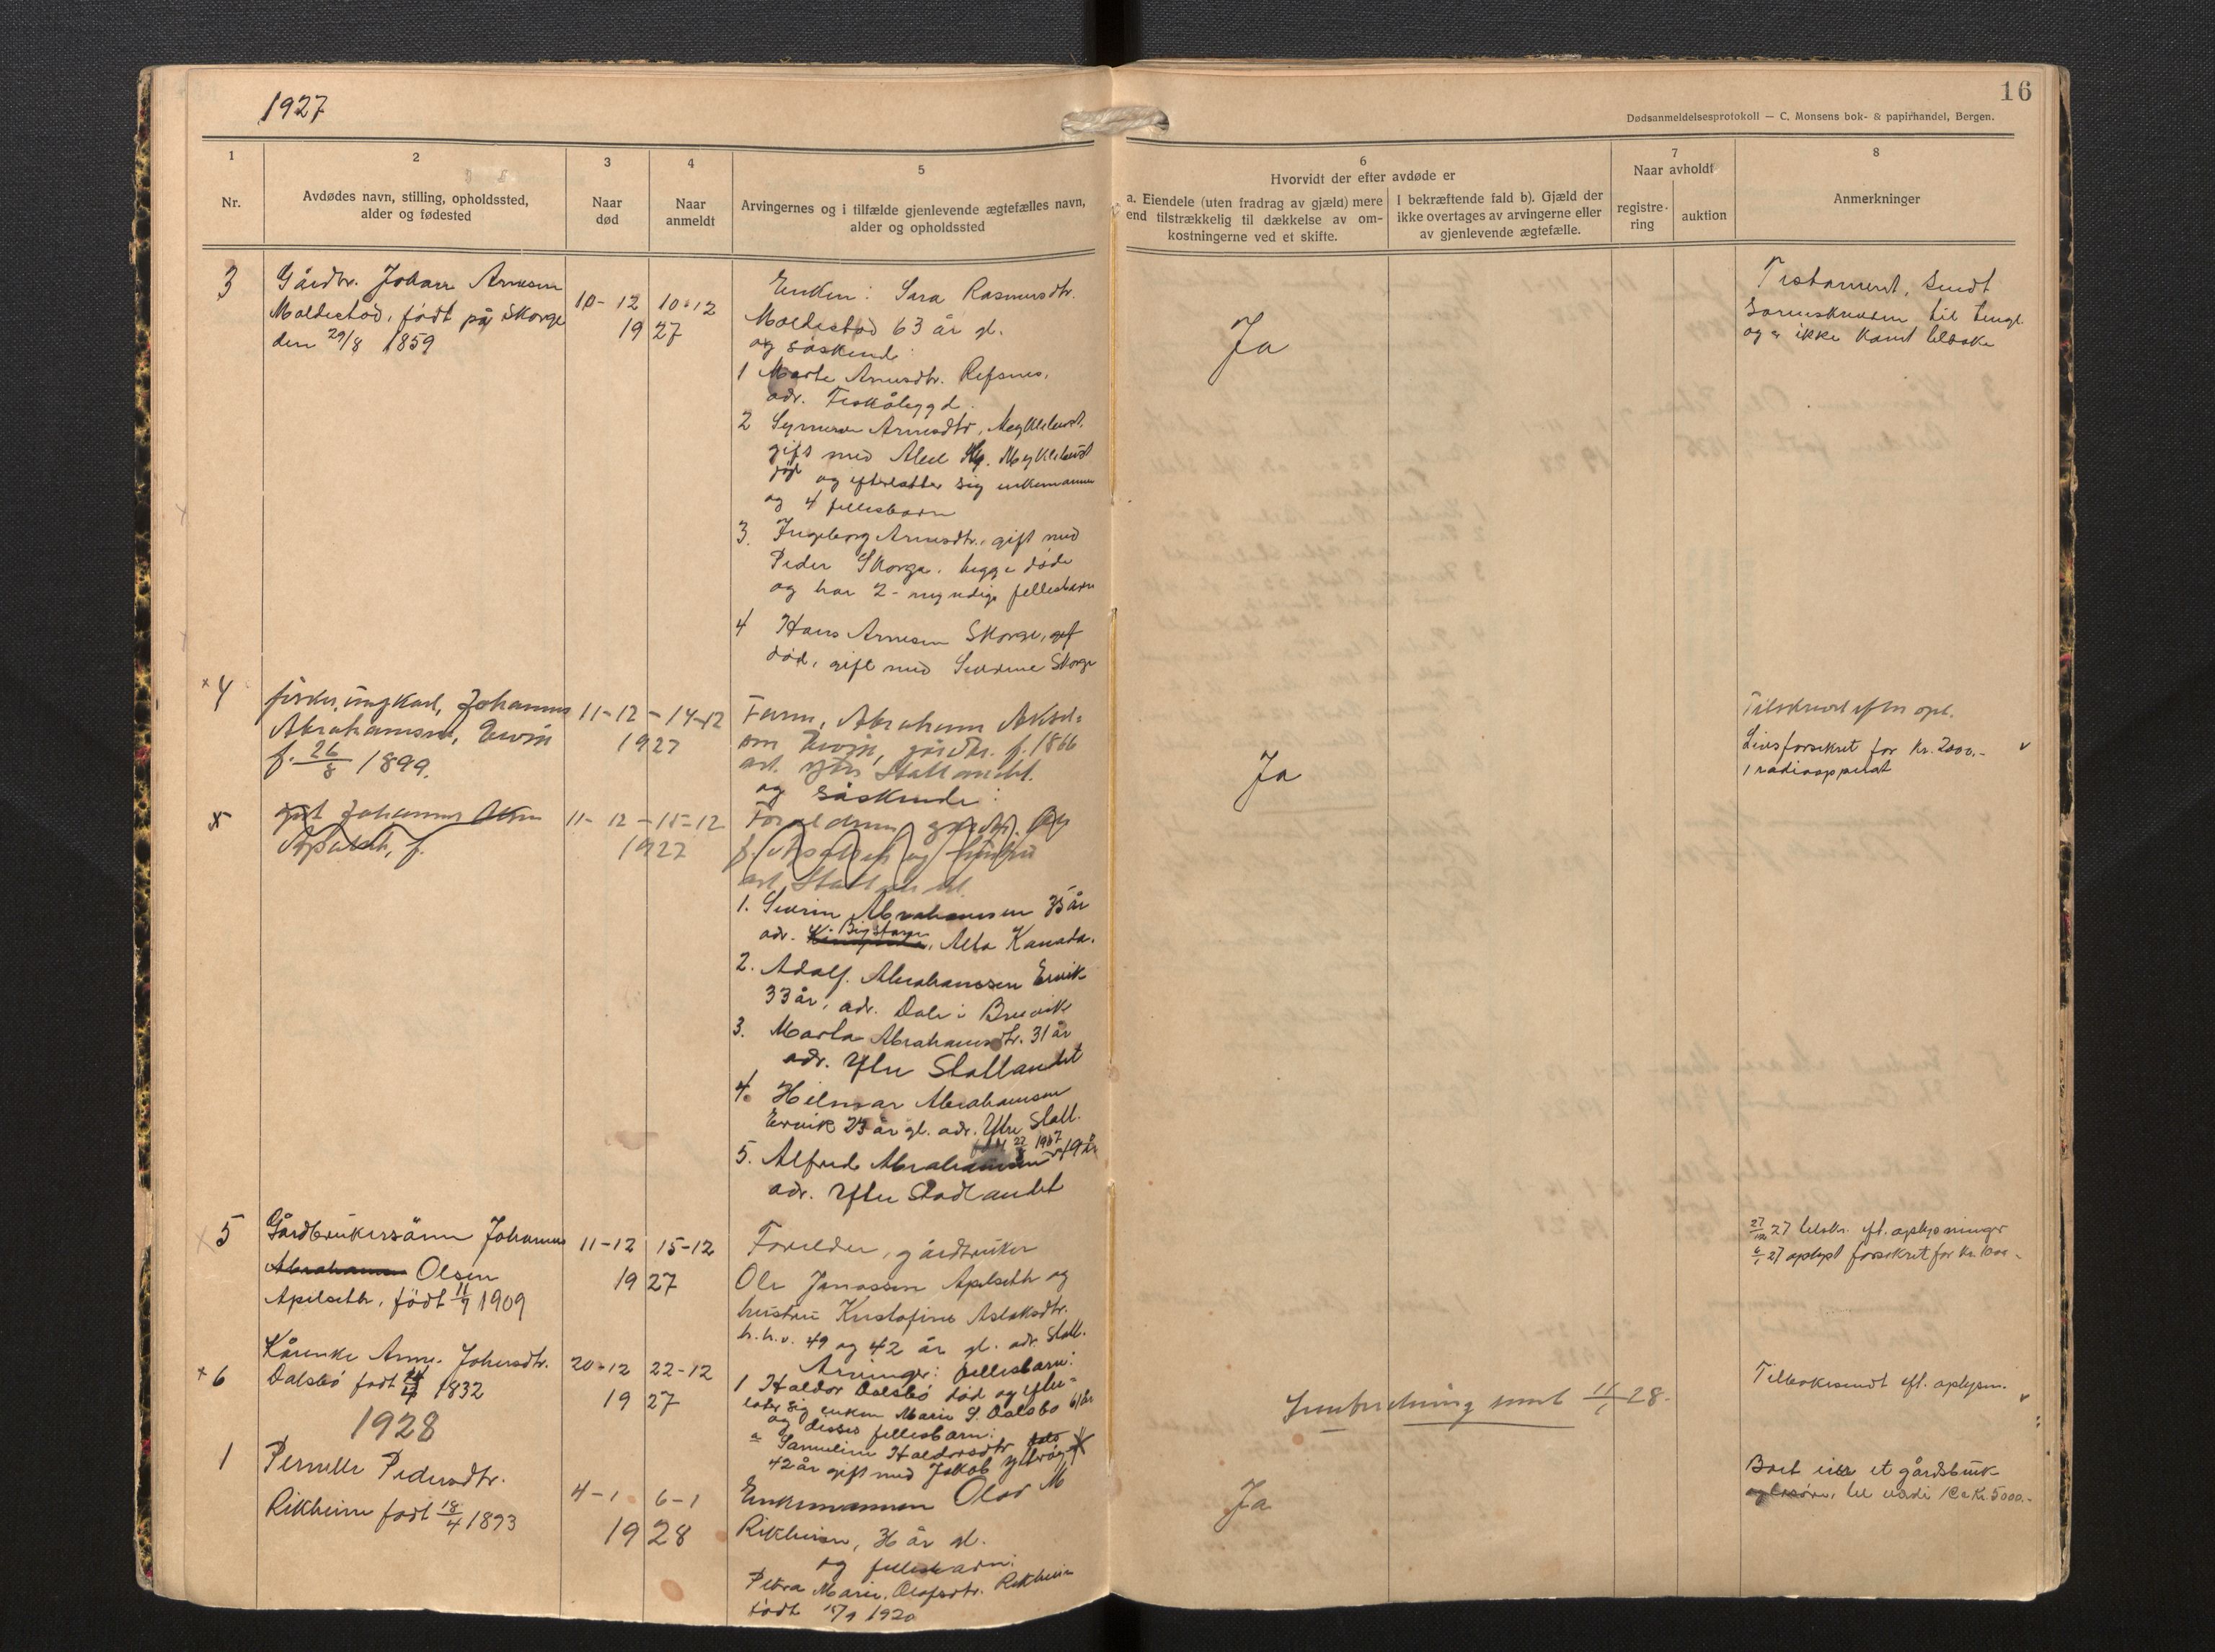 1927
16
Dødsanmeldelsesprotokoll — C. Monsens bok- & papirhandel, Bergen.
1
2
3
4
5
6
7
8
Nr.
Avdødes navn, stilling, opholdssted,
alder og fødested
Naar
død
Naar
anmeldt
Arvingernes og i tilfælde gjenlevende ægtefælles navn,
alder og opholdssted
Hvorvidt der efter avdøde er
a. Eiendele (uten fradrag av gjæld) mere
end tilstrækkelig til dækkelse av om-
kostningerne ved et skifte.
I bekræftende fald b). Gjæld der
ikke overtages av arvingerne eller
av gjenlevende ægtefælle.
Naar avholdt
registre-
ring
auktion
Anmerkninger
3
Gårdbr. Johan Arnesen
Moldestad, født på Skorge
den 29/8 1859
10-12 10-12
1927
Enken: Sara Rasmusdtr.
Moldestad 63 år gl.
og søskende:
1 Marte Arnesdtr. Refsnes,
adr. Fiskåbygd.
2 Arnesdtr, Myklebust,
gift med Myklebust
og efterlatter sig enkemannen
og 4 fellesbarn
3. Ingeborg Arnesdtr. gift med
Peder Skorge. begge døde
og har 2 myndige fellesbarn
4 Hans Arnesen Skorge,
død, gift med Severine Skorge
Ja
Testament, sendt
Sorenskriveren til tingl.
og er ikke komt tilbake
x 4
fisker, ungkarl, Johannes
Abrahamsen, Ervik
f. 26/8 1899.
11-12-14-12
1927
Farm, Abraham
Ervik, gårdbr. f. 1866
adr. ytre Stattlandet.
og søskende:
Ja
Tilskrevet efter opl.
Livsforsikret for Kr. 2000.-
1 radioapparat
v
5
Johannes
Apalset, f.
11-12-15-12
1927
1. Severin Abrahamsen 35 år
adr. Alta Kanada.
2. Adolf. Abrahamsen Ervik
33 år, adr. Dale i Bruvik
3. Marta Abrahamsdtr. 31 år
adr. Ytre Stattlandet
4. Hilmar Abrahamsen
Ervik 23 år gl. adr. Ytre Statt.
5. Alfred Abrahamsen 19 år
adr. Ytre Stadlandet
x 5
Gårdbrukersønn Johannes
Abrahamsen Olsen
Apelseth, født 11/9 1909
11-12 15-12
1927
Forelder, gårdbruker
Ole Jonassen Apelseth og
hustru Kristofine Aslaksdtr.
h.h.v. 49 og 42 år gl. adr. Statt.
27/12 27 tilskr. eft. oplysninger
27 oplyst forsikret for kr. 1000.-
x 6
Kårenke Anne Johansdtr.
Dalsbø født 1832
20-12 22-12
1927
Arvinger: fellesbarn:
1 Haldor Dalsbø død og efter-
later sig enken Marie S. Dalsbø 61 år
og disses fellesbarn:
a Samueline Haldorsdtr.
42 år gift med Jakob
Innberetning sendt 11/1 28.
Tilbakesendt eft. oplysn.
v
1928
1
Pernelle Pedersdtr.
Rikheim født 18/4 1893
4-1 6-1
1928
Enkemannen Olav M
Rikheim, 36 år gl.
og fellesbarn:
Petra Marie, Olafsdtr. Rikheim
født 1920
Ja
Boet eier et gårdsbruk
og løsøre, til verdi Ca Kr 5000.-